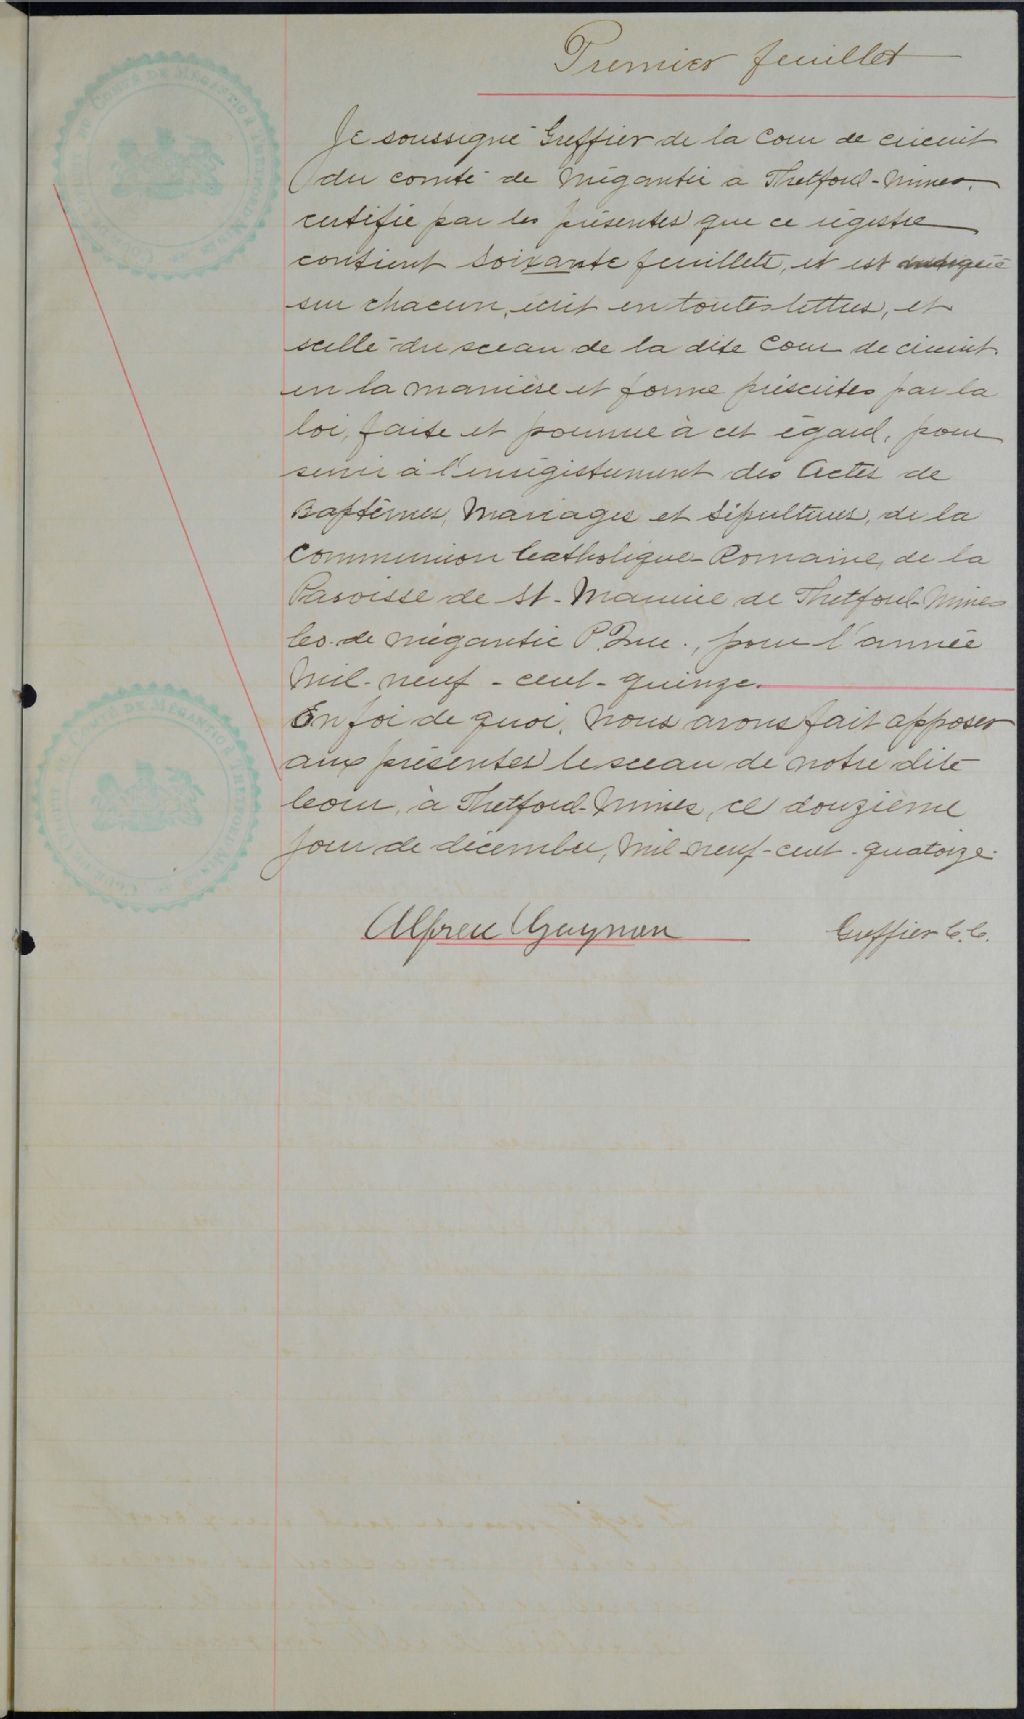 Premier feuillet
Je soussigné Greffier de la Cour de circuit
du comté de Mégantic à Thetford-Mines,
certifie par les présentes que ce régistre
contient soixante feuillets, et est
sur chacun, écrit en toutes lettres, et
scellé du sceau de la dite Cour de circuit
en la manière et forme préscrites par la
loi, faite et pourvue à cet égard, pour
servir à l'enrégistrement des Actes de
Baptêmes, Mariages et Sépultures, de la
Communion Catholique-Romaine, de la
Paroisse de St-Maurice de Thetford-Mines
Co. de Mégantic P. Que., pour l'année
Mil-neuf-cent-quinze.
En foi de quoi, nous avons fait apposer
aux présentes le sceau de notre dite
Cour, à Thetford-Mines, ce douzième
jour de décembre, mil-neuf-cent-quatorze.
Alfred Gagnon Greffier C.C.
COUR DE CIRCUIT DU COMTÉ DE MÉGANTIC À THETFORD MINES
COUR DE CIRCUIT DU COMTÉ DE MÉGANTIC À THETFORD MINES